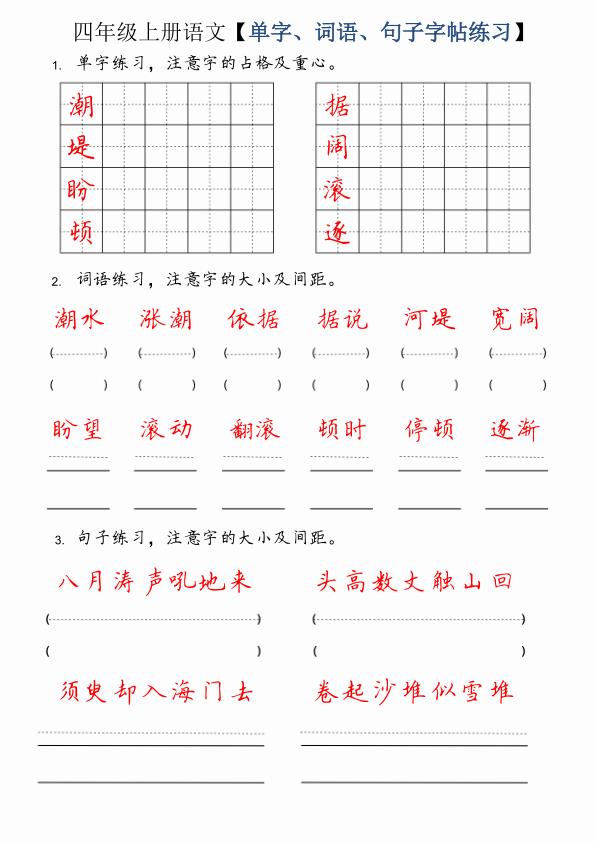 四年级上册语文【单字、词语、句子字帖练习】
1. 单字练习，注意字的占格及重心。
潮 据
堤 阔
盼 滚
顿 逐
2. 词语练习，注意字的大小及间距。
潮水 涨潮 依据 据说 河堤 宽阔
( ) ( ) ( ) ( ) ( ) ( )
( ) ( ) ( ) ( ) ( ) ( )
盼望 滚动 翻滚 顿时 停顿 逐渐
3. 句子练习，注意字的大小及间距。
八月涛声吼地来 头高数丈触山回
( ) ( )
( ) ( )
须臾却入海门去 卷起沙堆似雪堆